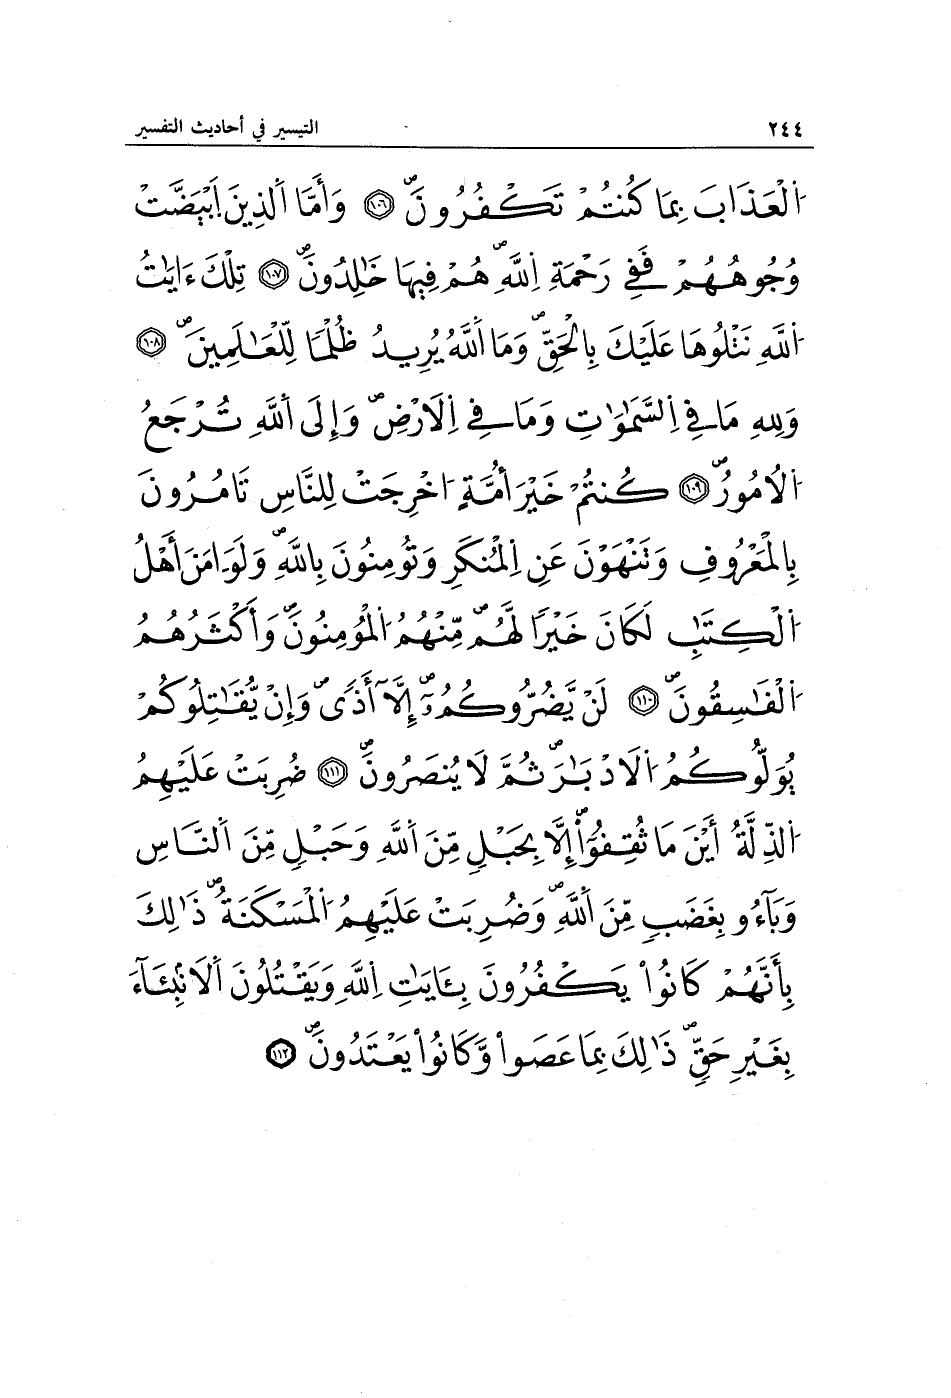 ٢٤٤ التيسير في أحاديث التفسير
اَ۬لْعَذَابَ بِمَا كُنتُمْ تَكْفُرُونَۖ ١٠٦ وَأَمَّا اَ۬لذِينَ اَ۪بْيَضَّتْ
وُجُوهُهُمْ فَفِي رَحْمَةِ اِ۬للَّهِۖ هُمْ فِيهَا خَٰلِدُونَۖ ١٠٧ تِلْكَ ءَايَٰتُ
اُ۬للَّهِ نَتْلُوهَا عَلَيْكَ بِالْحَقِّۖ وَمَا اَ۬للَّهُ يُرِيدُ ظُلْمًا لِّلْعَٰلَمِينَۖ ١٠٨
وَلِلهِ مَا فِي اِ۬لسَّمَٰوَٰتِ وَمَا فِي اِ۬لَارْضِۖ وَإِلَى اَ۬للَّهِ تُرْجَعُ
اُ۬لُامُورُۖ ١٠٩ كُنتُمْ خَيْرَ أُمَّةٍ اُخْرِجَتْ لِلنَّاسِ تَامُرُونَ
بِالْمَعْرُوفِ وَتَنْهَوْنَ عَنِ اِ۬لْمُنكَرِ وَتُومِنُونَ بِاللَّهِۖ وَلَوَ اٰمَنَ أَهْلُ
اُ۬لْكِتَٰبِ لَكَانَ خَيْرًا لَّهُمۖ مِّنْهُمُ اُ۬لْمُومِنُونَۖ وَأَكْثَرُهُمُ
اُ۬لْفَٰسِقُونَۖ ١١٠ لَنْ يَّضُرُّوكُمُۥٓ إِلَّآ أَذًىۖ وَإِنْ يُّقَٰتِلُوكُمْ
يُوَلُّوكُمُ اُ۬لَادْبَٰرَۖ ثُمَّ لَا يُنصَرُونَۖ ١١١ ضُرِبَتْ عَلَيْهِمُ
اُ۬لذِّلَّةُ أَيْنَ مَا ثُقِفُوٓاْۖ إِلَّا بِحَبْلٍ مِّنَ اَ۬للَّهِ وَحَبْلٍ مِّنَ اَ۬لنَّاسِ
وَبَآءُو بِغَضَبٍ مِّنَ اَ۬للَّهِۖ وَضُرِبَتْ عَلَيْهِمُ اُ۬لْمَسْكَنَةُۖ ذَٰلِكَ
بِأَنَّهُمْ كَانُواْ يَكْفُرُونَ بِـَٔايَٰتِ اِ۬للَّهِ وَيَقْتُلُونَ اَ۬لَانۢبِئَآءَ
بِغَيْرِ حَقٍّۖ ذَٰلِكَ بِمَا عَصَواْ وَّكَانُواْ يَعْتَدُونَۖ ١١٢